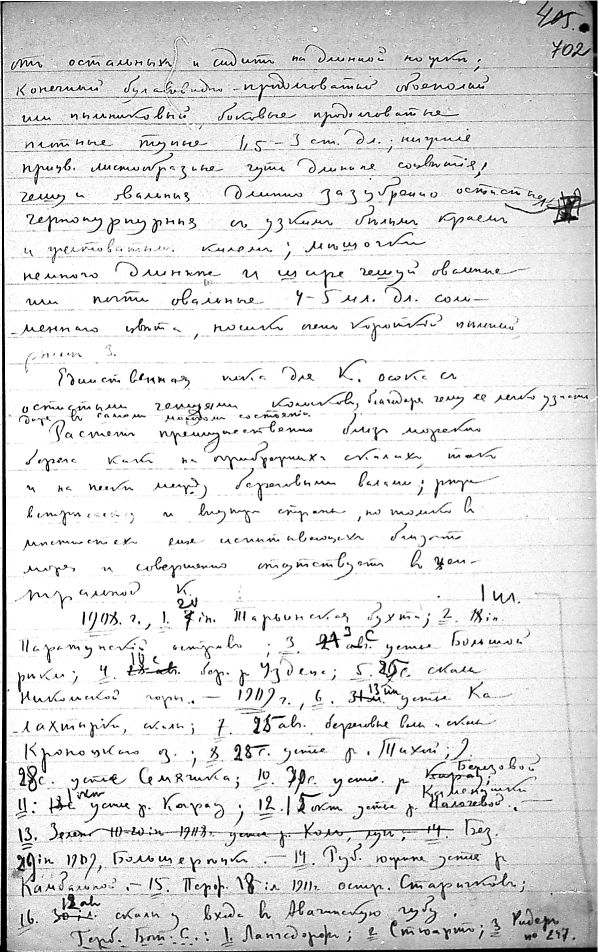 405.
702
отъ остальныхъ и сидитъ на длинной ножкѣ;
конечный булавовидно-продолговатый обоеполый
или пыльниковый, боковые продолговатые
плотные тупые 1,5–3 ст. дл.; нижніе
прицв. листообразные чуть длиннѣе соцвѣтія,
чешуи овальныя длинно зазубренно остистыя,
чернопурпурныя съ узкимъ бѣлымъ краемъ
и килемъ; мѣшочки
немного длиннѣе и шире чешуй овальные
или почти овальные 4–5 мл. дл. соло-
меннаго цвѣта, носикъ очень короткій цѣльный
рылец 3.
Единственная пока для К. осока съ
остистыми чешуями колосковъ, благодаря чему ее легко узнать
даже въ самомъ молодомъ состояніи.
Растетъ преимущественно близъ морского
берега какъ на прибрежныхъ скалахъ, такъ
и на пескѣ между береговыми валами; рѣже
встрѣчается и внутри страны, но только въ
мѣстностяхъ еще испытывающихъ близость
моря и совершенно отсутствуетъ въ цен-
тральной К.
1908 г., 1. 20 іп. Тарьинская бухта; 2. 1 іл.
Паратунскій островъ; 3. 3 с. устье Большой
рѣки; 4. 18 с. бер. р. Уздецъ; 5. 25 с. скалы
Никольской горы. — 1909 г., 6. 13 іп. устье Ка-
лахтырки, скалы; 7. 25 ав. береговые валы и скалы
Кроноцкаго оз.; 8. 25 с. устье р. Тихой; 9.
28 с. устье Семячика; 10. 30 с. устье р. Березовой
11. 1 окт. устье р. Карау; 12. 15 окт. устье р. Каменушки
13. Зелен. 10-20 іп 1908. устье р. Коль, луга; 14. Без.
29 іп 1909, Большерѣцкъ. — 14. Руб. южнѣе устье р.
Камбальной. — 15. Перф. 18 іл 1911. остр. Старичковъ;
16. 12 ав. скалы у входа въ Авачинскую губу.
Герб. Бот. С.: 1. Лангсдорфъ; 2 Стюартъ; 3 Ридеръ
no 247.